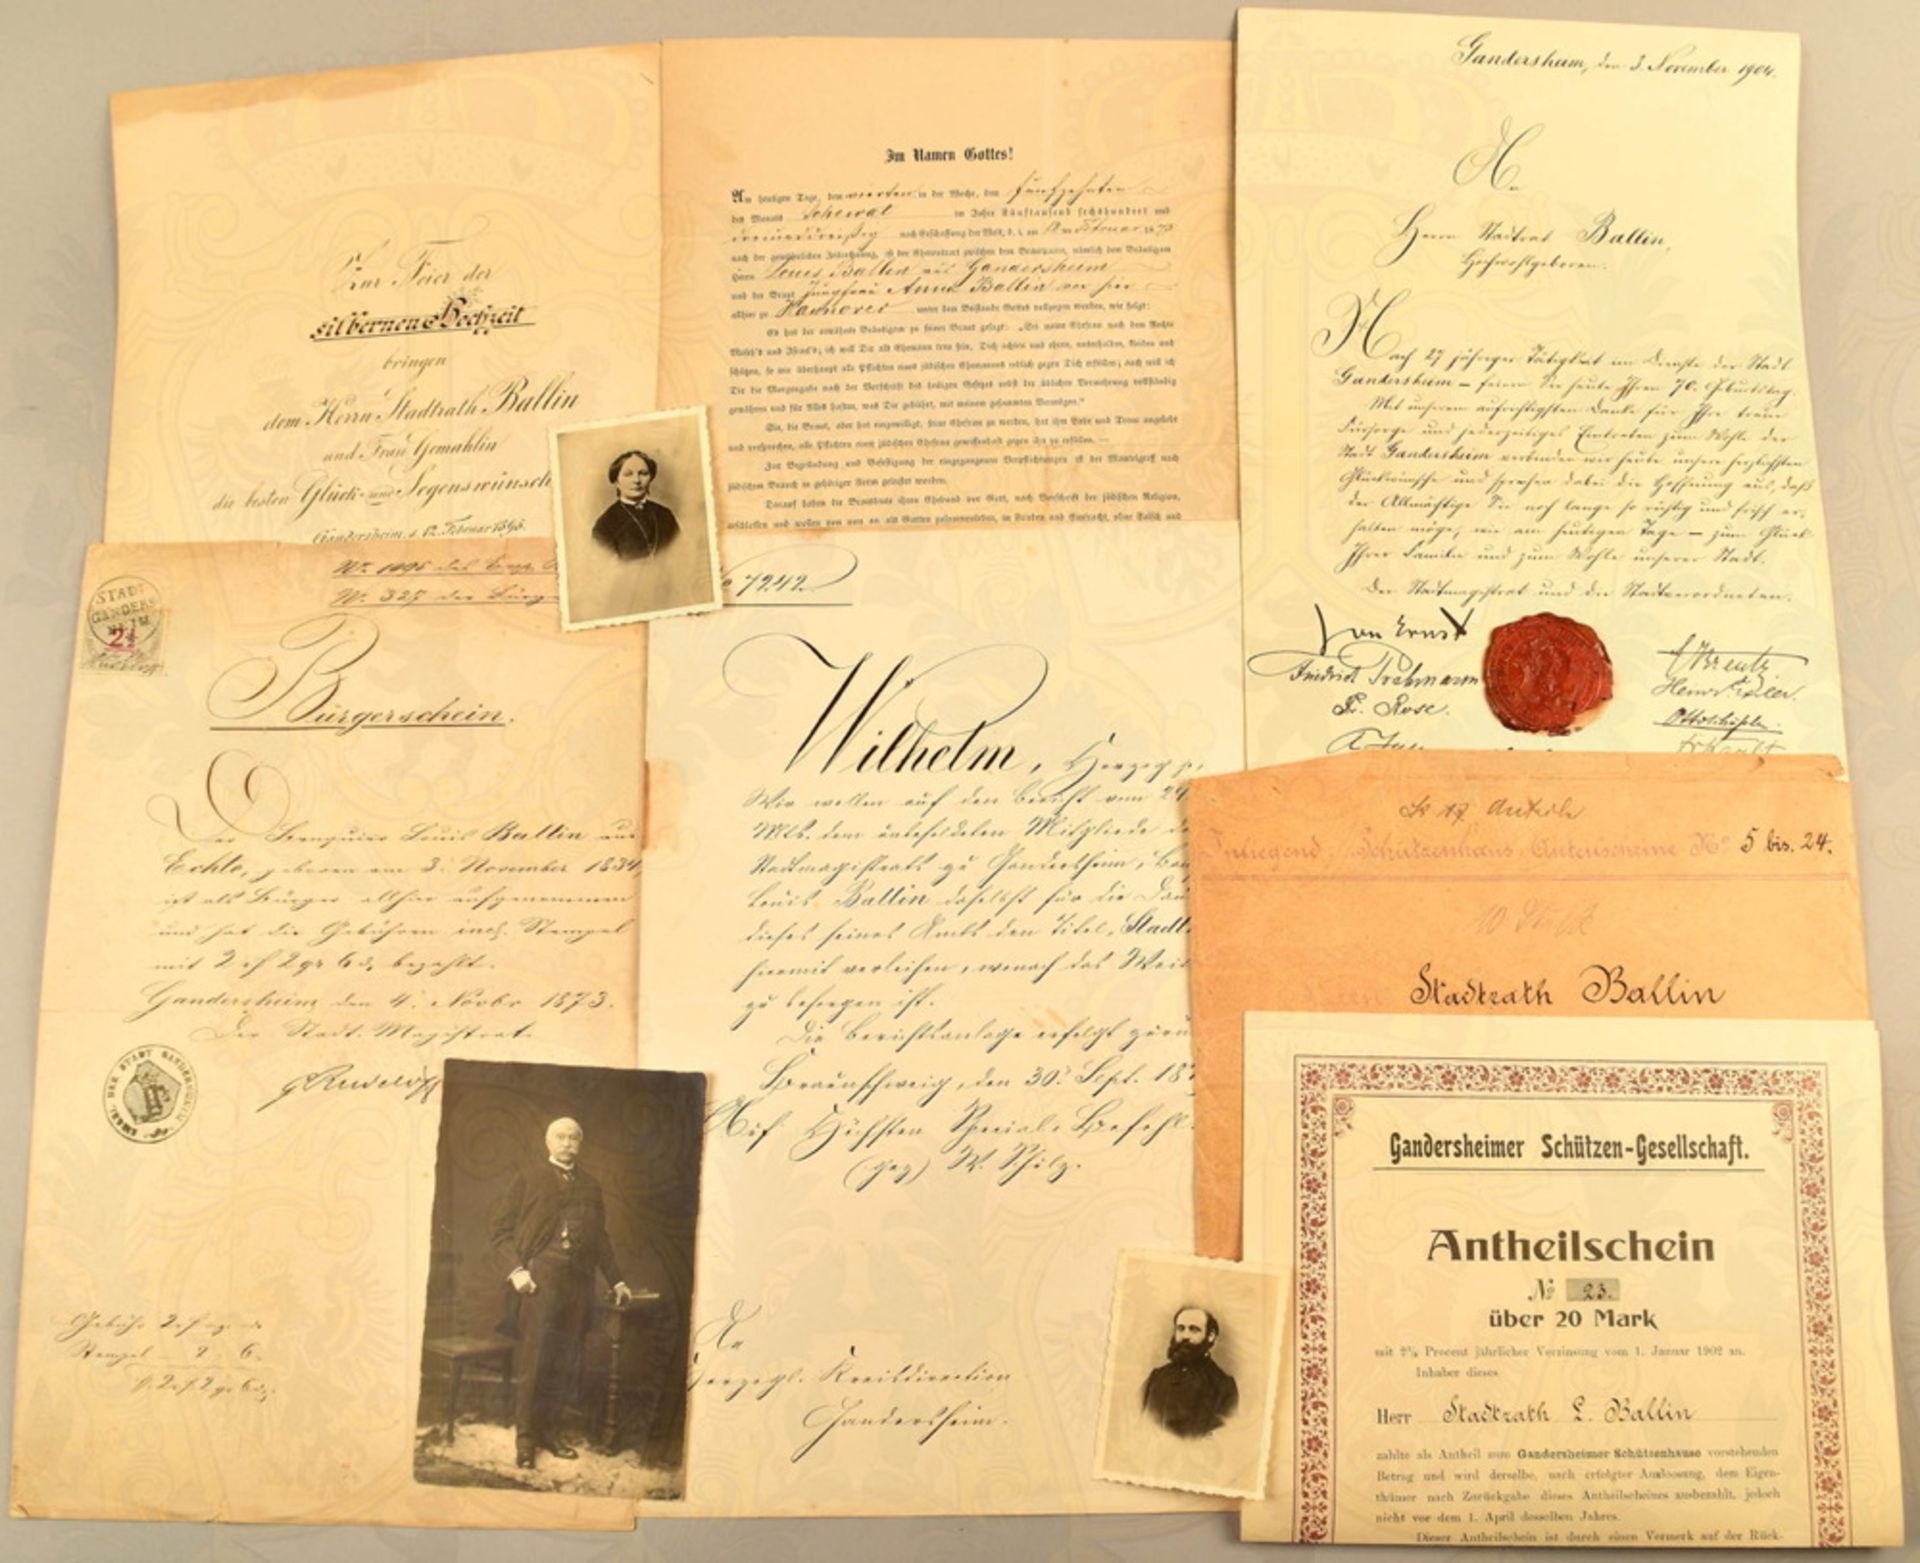 Zur Feier der
silbernen Hochzeit
bringen
dem Herrn Stadtrath Ballin
und Frau Gemahlin
die besten Glück- und Segenswünsche
Gandersheim, d. 12. Februar 1898.
Im Namen Gottes!
Am heutigen Tage, dem vierten in der Woche, den fünfzehnten
des Monats Schewat im Jahre fünftausend sechshundert und
dreiunddreißig nach Erschaffung der Welt, d. i. am 12ten Februar 1873
nach der gewöhnlichen Zeitrechnung, ist der Ehecontract zwischen dem Brautpaare, nämlich dem Bräutigam
Herrn Louis Ballin aus Gandersheim
und der Braut Jungfrau Anna Ballin von hier
allhier zu Hannover unter dem Beistande Gottes vollzogen worden, wie folgt:
Es hat der erwähnte Bräutigam zu seiner Braut gesagt: „Sei meine Ehefrau nach dem Rechte
Mosch's und Israel's; ich will Dir als Ehemann treu sein, Dich achten und ehren, unterhalten, kleiden und
schützen, so wie überhaupt alle Pflichten eines jüdischen Ehemannes redlich gegen Dich erfüllen; auch will ich
Dir die Morgengabe nach der Vorschrift des heiligen Gesetzes nebst der üblichen Vermehrung vollständig
gewähren und für Alles haften, was Dir gebührt, mit meinem gesammten Vermögen."
Sie, die Braut, aber hat eingewilligt, seine Ehefrau zu werden, hat ihm Liebe und Treue angelobt
und versprochen, alle Pflichten einer jüdischen Ehefrau gewissenhaft gegen ihn zu erfüllen. —
Zur Begründung und Befestigung der eingegangenen Verpflichtungen ist der Mantelgriff nach
jüdischem Brauch in gehöriger Form geleistet worden.
Darauf haben die Brautleute ihren Ehebund vor Gott, nach Vorschrift der jüdischen Religion,
geschlossen und wollen von nun an als Gatten zusammenleben, in Frieden und Eintracht, ohne Falsch und
Gandersheim, den 3. November 1904.
Herrn Stadtrat Ballin,
Hochwohlgeboren.
Nach 27 jähriger Tätigkeit im Dienste der Stadt
Gandersheim – feiern Sie heute Ihren 70. Geburtstag.
Mit unserem aufrichtigsten Danke für Ihre treue
Fürsorge und jederzeitiges Eintreten zum Wohle der
Stadt Gandersheim verbinden wir heute unsere herzlichsten
Glückwünsche und sprechen dabei die Hoffnung aus, daß
der Allmächtige Sie noch lange so rüstig und frisch er-
halten möge, wie am heutigen Tage – zum Glück
Ihrer Familie und zum Wohle unserer Stadt.
Der Stadtmagistrat und die Stadtverordneten.
von Ernst
Friedrich
Rose.
STADT
GANDERS
HEIM
Bürgerschein.
Der Banquier Louis Ballin aus
Echte, geboren am 3. November 1834,
ist als Bürger allhier aufgenommen
und hat die Gebühren incl. Stempel
mit 2 2 gr 6 bezahlt.
Gandersheim den 4. Novbr 1873.
Der Stadt-Magistrat.
7242.
Wilhelm, Herzog
Wir wollen auf den Bericht vom 24
Mts. dem unbesoldeten Mitgliede
Stadtmagistrats zu Gandersheim,
Louis Ballin daselbst für die
dieses seines Amts den Titel „Stadt
hiermit verleihen, wonach das
zu besorgen ist.
Die Berichtsanlage erfolgt
Braunschweig, den 30. Sept. 18
Auf Höchsten Special-Befehl.
(gez) W. Schulz.
An
Herzogl. Kreisdirection
Gandersheim.
Anteile
Inliegend: Schützenhaus-Anteilscheine No 5 bis 24.
10 Stück
Stadtrath Ballin
Gandersheimer Schützen-Gesellschaft.
Antheilschein
No 23.
über 20 Mark
mit 2½ Procent jährlicher Verzinsung vom 1. Januar 1902 an.
Inhaber dieses
Herr Stadtrath L. Ballin
zahlte als Antheil zum Gandersheimer Schützenhause vorstehenden
Betrag und wird derselbe, nach erfolgter Ausloosung, dem Eigen-
thümer nach Zurückgabe dieses Antheilscheines ausbezahlt, jedoch
nicht vor dem 1. April desselben Jahres.
Dieser Antheilschein ist durch einen Vermerk auf der Rück-